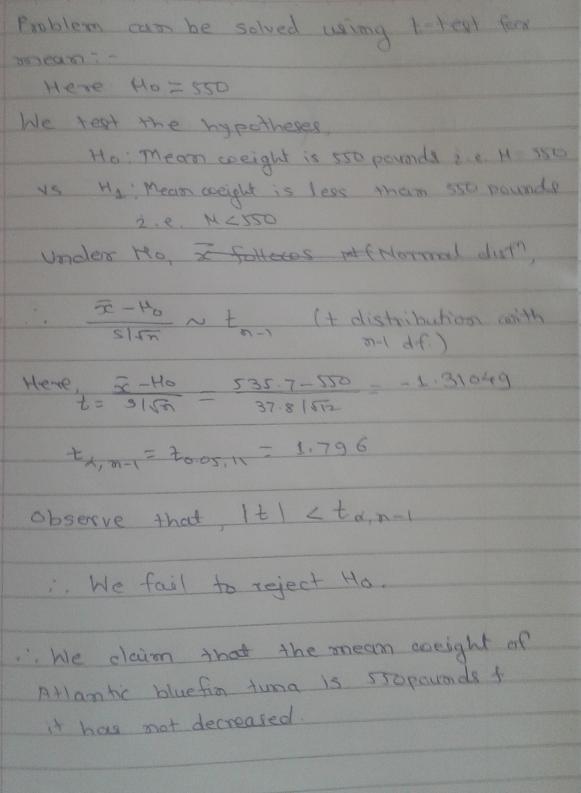 Problem can be solved using t-test for
mean:-
Here μ₀ = 550
We test the hypotheses,
H₀: Mean weight is 550 pounds i.e. μ = 550
vs H₁: Mean weight is less than 550 pounds
i.e. μ < 550
Under H₀, x̄ follows Normal distⁿ,
∴ (x̄ - μ₀)/(s/√n) ~ t n-1 (t distribution with
n-1 df.)
Here, t = (x̄ - μ₀)/(s/√n) = (535.7 - 550)/(37.8/√12) = -1.31049
t α, n-1 = t 0.05, 11 = 1.796
Observe that, |t| < t α, n-1
∴ We fail to reject H₀.
∴ We claim that the mean weight of
Atlantic bluefin tuna is 550 pounds &
it has not decreased.